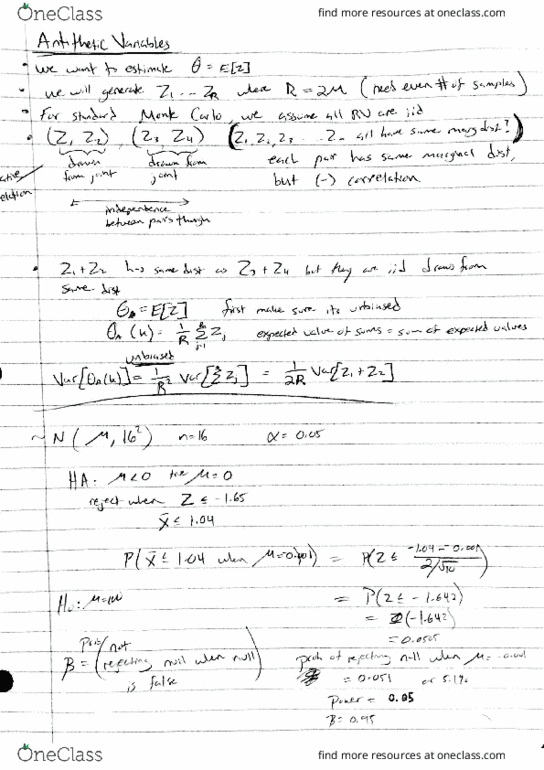 OneClass
find more resources at oneclass.com
Antithetic Variables
• we want to estimate θ = E[Z]
• we will generate Z1 ... ZR where R = 2M (need even # of samples)
• For standard Monte Carlo, we assume all RV are iid
• (Z1 Z2), (Z3 Z4) (Z1, Z2, Z3 ... Zn all have same marg dist?)
drawn from joint drawn from joint each pair has same marginal dist,
but (-) correlation
independence
between pairs though
• Z1+Z2 has same dist as Z3+Z4 but they are iid draws from
same dist
= E[Z] first make sure its unbiased
(u) = 1/R Σ Zj expected value of sums = sum of expected values
unbiased
Var[θn(u)] = 1/R² Var[Σ Zj] = 1/2R Var[Z1+Z2]
~ N(μ, 16²) n=16 α = 0.05
HA: μ<0 μ=0
reject when Z ≤ -1.65
x̄ ≤ 1.04
P(x̄ ≤ 1.04 when
= P(Z ≤ -1.642)
= (-1.642)
= 0.0505
β = (not rejecting null when null is false)
prob of rejecting null when μ = -0.001
= 0.051 or 5.1%
Power = 0.05
β = 0.95
OneClass
find more resources at oneclass.com